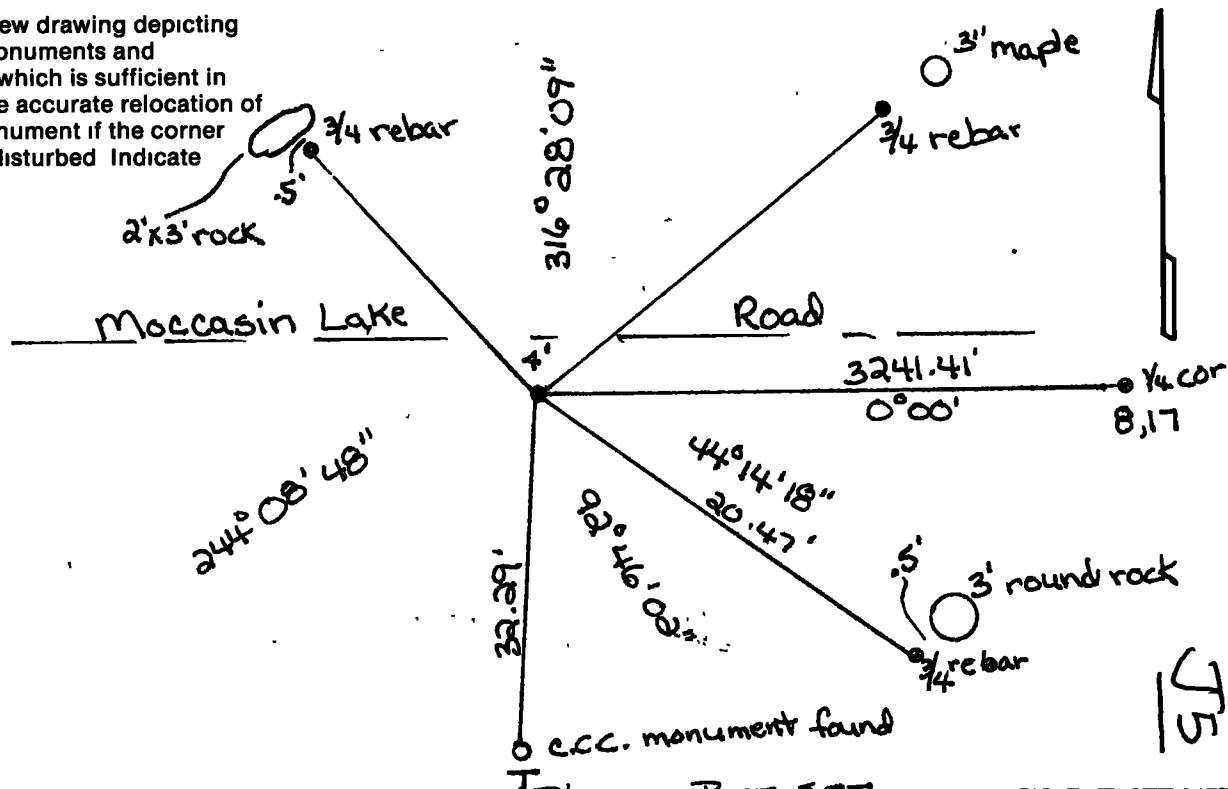 ew drawing depicting
onuments and
which is sufficient in
e accurate relocation of
nument if the corner
disturbed Indicate
3" maple
3/4 rebar
3/4 rebar
.5'
2'x3' rock
316° 28' 09"
Moccasin Lake Road
4'
3241.41'
0° 00'
1/4 cor
8,17
244° 08' 48"
44° 14' 18"
20.47'
92° 46' 02
32.29'
.5'
3' round rock
3/4 rebar
c.c.c. monument found